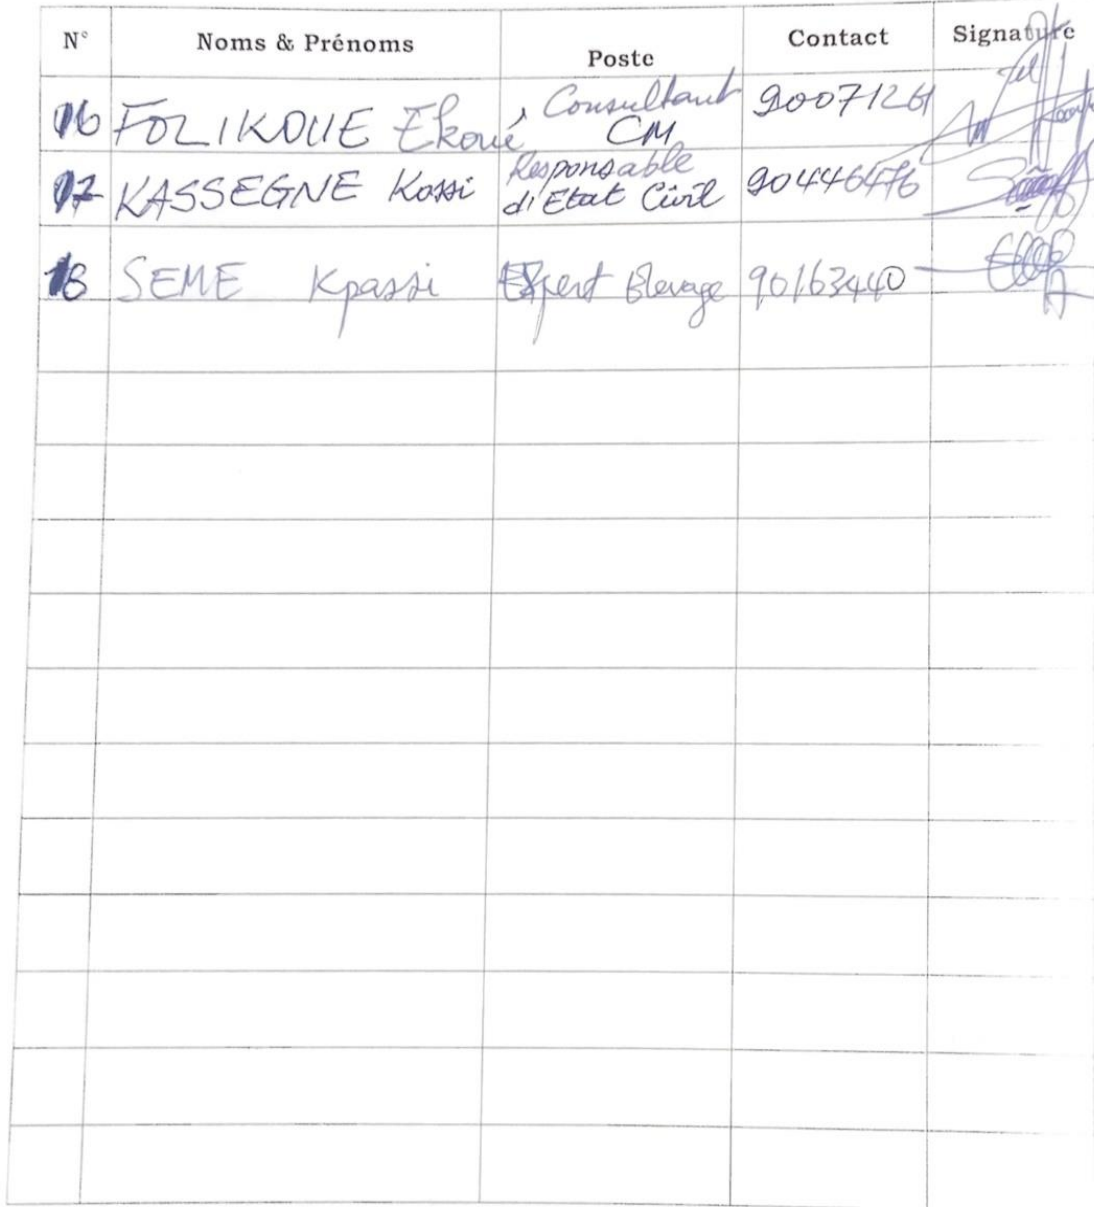 N° Noms & Prénoms Poste Contact Signature
16 FOLIKOUE Ekoué, Consultant CM 90071261
17 KASSEGNE Kossi Responsable d'Etat Civil 90446476
18 SEME Kpassi Expert Elevage 90163440